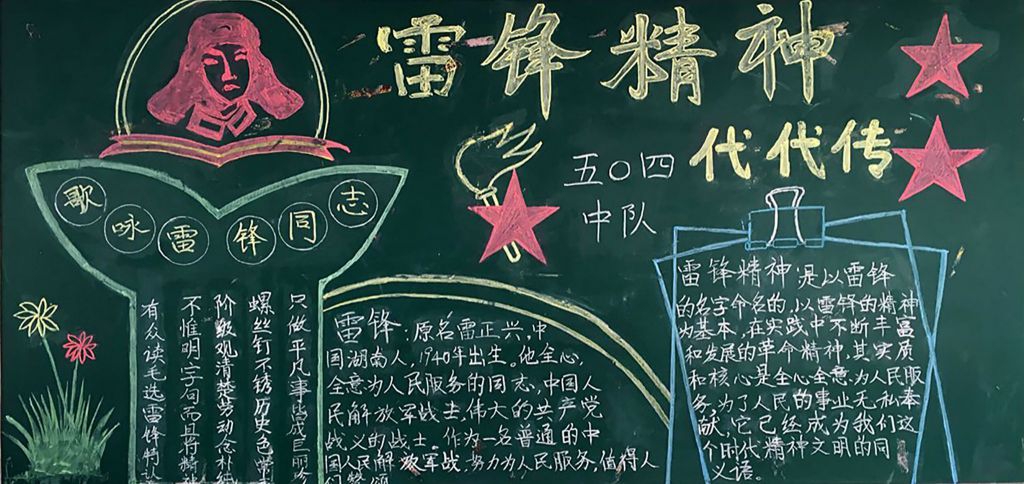 雷锋精神
代代传
五〇四
中队
歌咏雷锋同志
有众读毛选雷锋特
不惟明字句而且得精
阶级观清楚劳动念朴
螺丝钉不锈历史色常
只做平凡事皆成巨丽
雷锋,原名雷正兴,中
国湖南人,1940年出生。他全心
全意为人民服务的同志,中国人
民解放军战士,伟大的共产党
战义的战士。作为一名普通的中
国人民解放军战,努力为人民服务,值得人
雷锋精神是以雷锋
的名字命名的,以雷锋的精神
为基本,在实践中不断丰富
和发展的革命精神,其实质
和核心是全心全意为人民服
务,为了人民的事业无私奉
献,它已经成为我们这
个时代精神文明的同
义语。